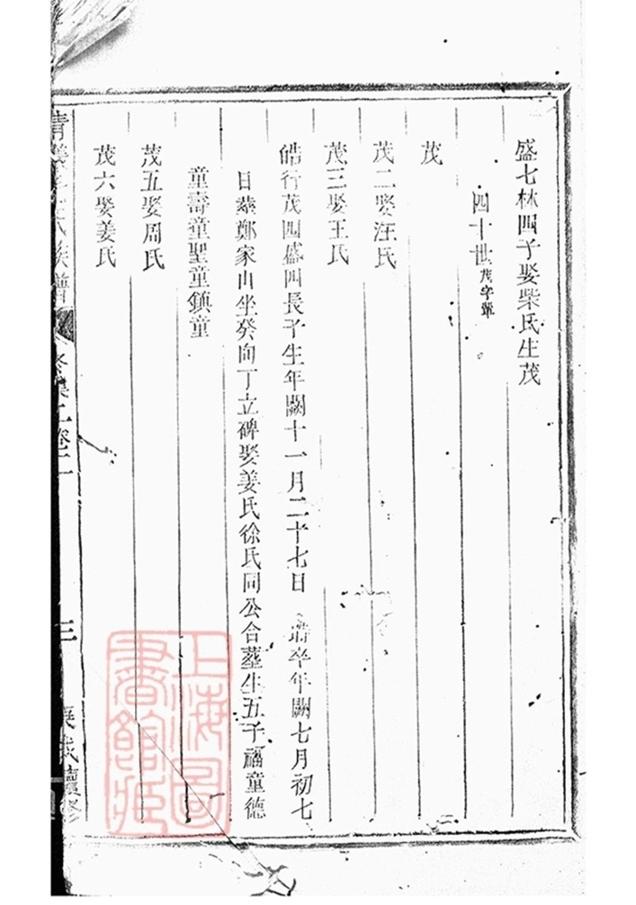 盛七林四子娶柴氏生茂
四十世茂字輩
茂
茂二娶汪氏
茂三娶王氏
皓行茂四盛四長子生年闕十一月二十七日 卒年闕七月初七
日葬鄭家山坐癸向丁立碑娶姜氏徐氏同公合墓生五子福童德
童壽童聖童鎮童
茂五娶周氏
茂六娶姜氏
氏族譜
三
續修
上海圖
書館藏